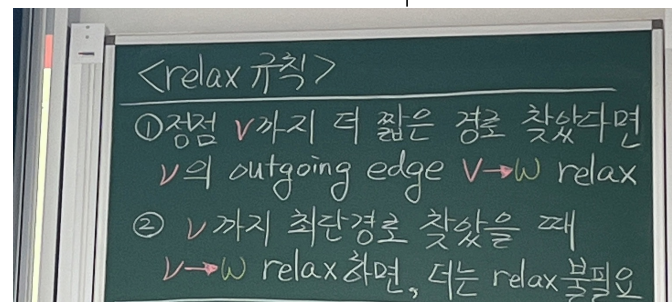 <relax 규칙>
①정점 v까지 더 짧은 경로 찾았다면
v의 outgoing edge v→w relax
② v까지 최단경로 찾았을 때
v→w relax하면, 더는 relax불필요